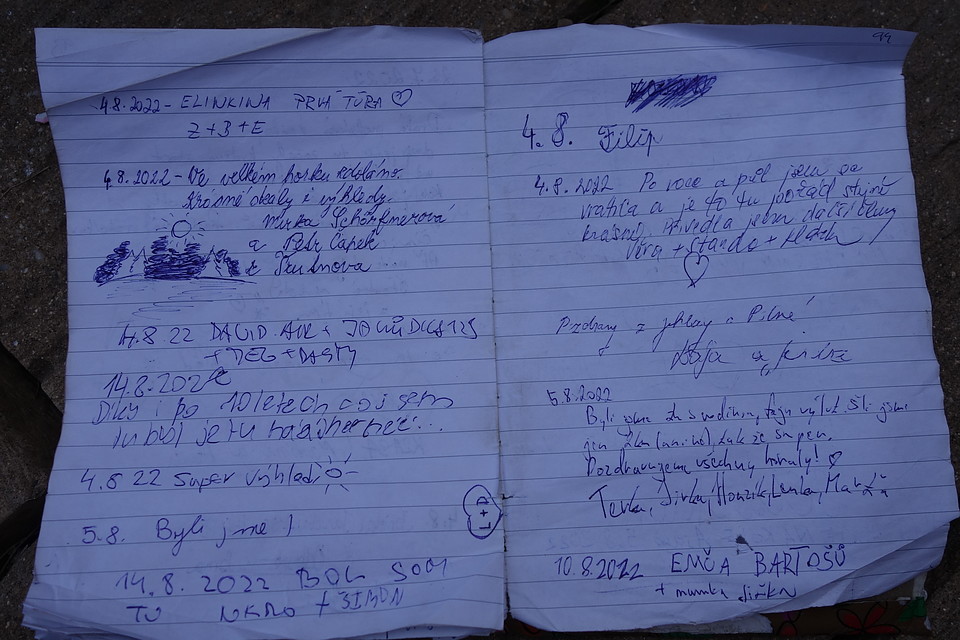 4.8.2022 - ELINKINA PRVÁ TÚRA ♡
Z + B + E
4.8.2022 - Ve velkém horku
Krásné skály i výhledy.
Mirka
a Petr Čapek
z Trutnova ...
4.8 22 DAVID
+ DEG + DASTY
14.8.202
Díky i po 10 letech co jsem
tu byl je tu nádherně...
4.8 22 super výhled
5.8. Byli jsme!
D+T
14.8.2022 BOL SOM
TU + ŠIMON
99
4.8. Filip
4.8.2022 Po roce a půl jsem se
vrátila a je to tu pořád stejně
krásný. Přivedla jsem další členy
Věra + Standa +
♡
Pozdravy z Jihlavy a Plzně
5.8.2022
Byli jsme zde s rodinou, fajn výlet. Šli jsme
jen 2km
Pozdravujeme všechny ♡
Terka, Jirka, Honzík, Lenka,
10.8.2022 EMČA BARTOŠŮ
+ mamka Jiřka